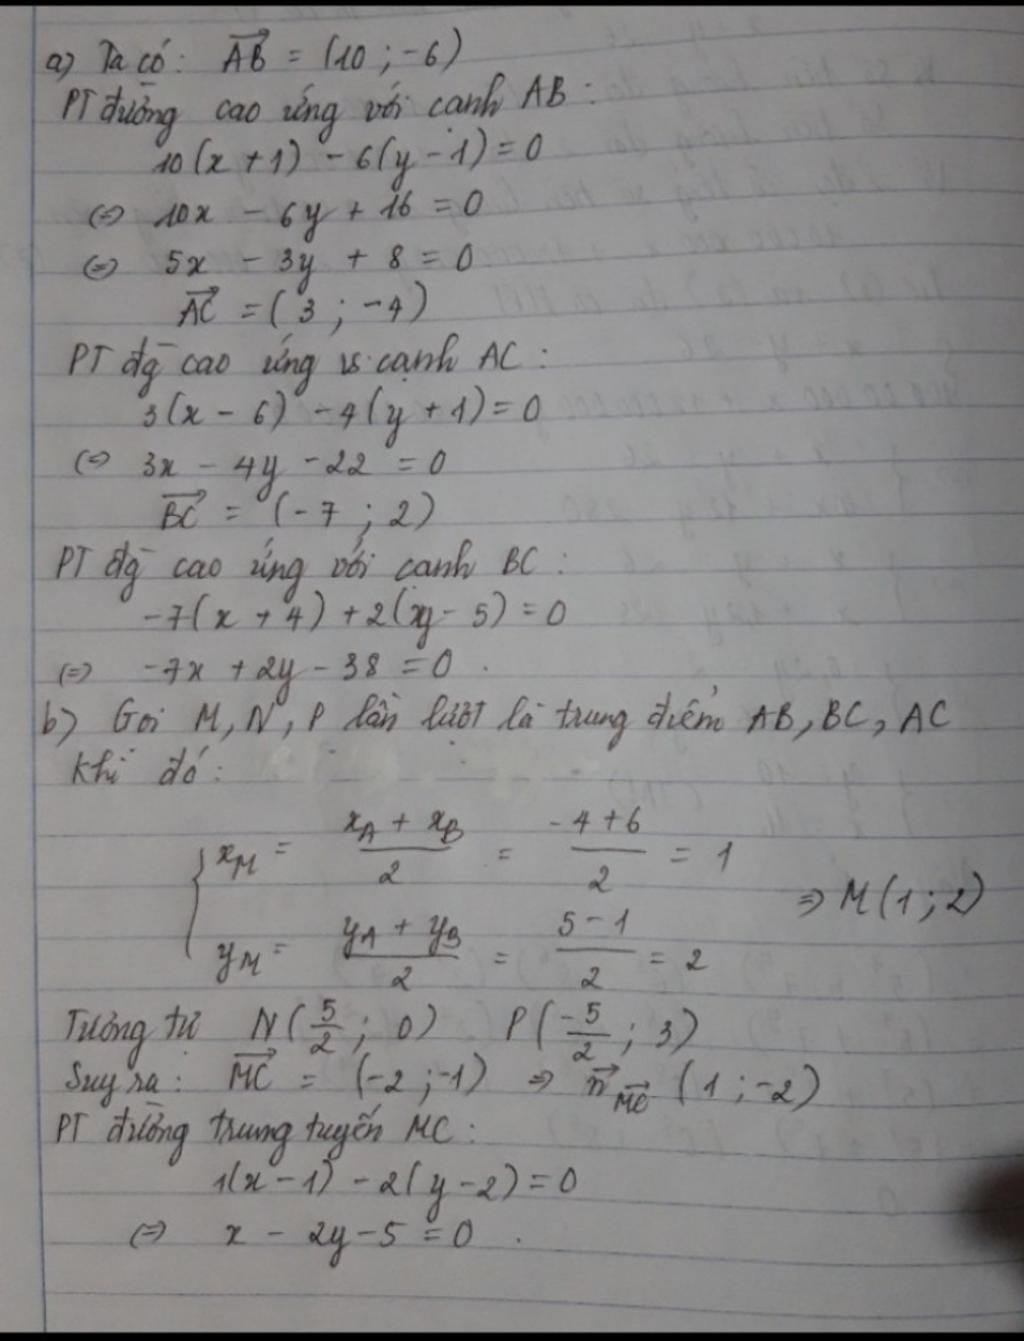 a) Ta có: AB = (10 ; -6)
PT đường cao ứng với cạnh AB :
10(x + 1) - 6(y - 1) = 0
(=) 10x - 6y + 16 = 0
(=) 5x - 3y + 8 = 0
AC = ( 3 ; -4 )
PT đg cao ứng vs cạnh AC :
3(x - 6) - 4(y + 1) = 0
(=) 3x - 4y - 22 = 0
BC = (-7 ; 2)
PT đg cao ứng với cạnh BC :
-7(x + 4) + 2(y - 5) = 0
(=) -7x + 2y - 38 = 0 .
b) Gọi M, N, P lần lượt là trung điểm AB, BC, AC
Khi đó :
x_M = (x_A + x_B)/2 = (-4 + 6)/2 = 1
=> M(1 ; 2)
y_M = (y_A + y_B)/2 = (5 - 1)/2 = 2
Tương tự N(5/2 ; 0) P(-5/2 ; 3)
Suy ra : MC = (-2 ; -1) => n_MC (1 ; -2)
PT đường trung tuyến MC :
1(x - 1) - 2(y - 2) = 0
(=) x - 2y - 5 = 0 .